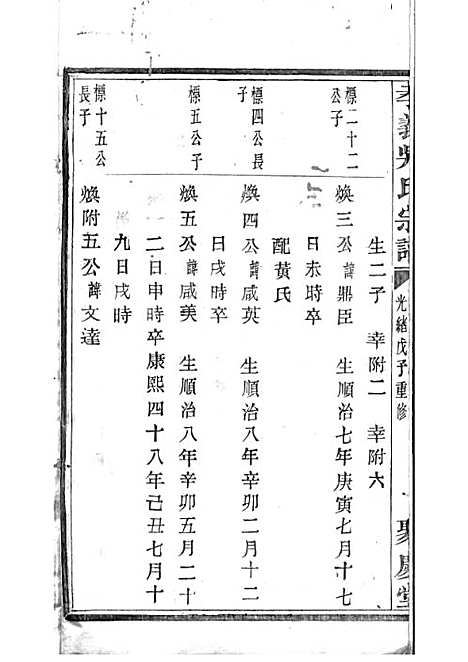 孝義吳氏宗譜
光緒戊子重修
聚慶堂
生二子 幸附二 幸附六
標二十二
公子
煥三公諱鼎臣 生順治七年庚寅七月十七
日未時卒
配黃氏
標四公長
子
煥四公諱咸英 生順治八年辛卯二月十二
日戌時卒
標五公子
煥五公諱咸美 生順治八年辛卯五月二十
二日申時卒康熙四十八年己丑七月十
九日戌時
標十五公
長子
煥附五公諱文達